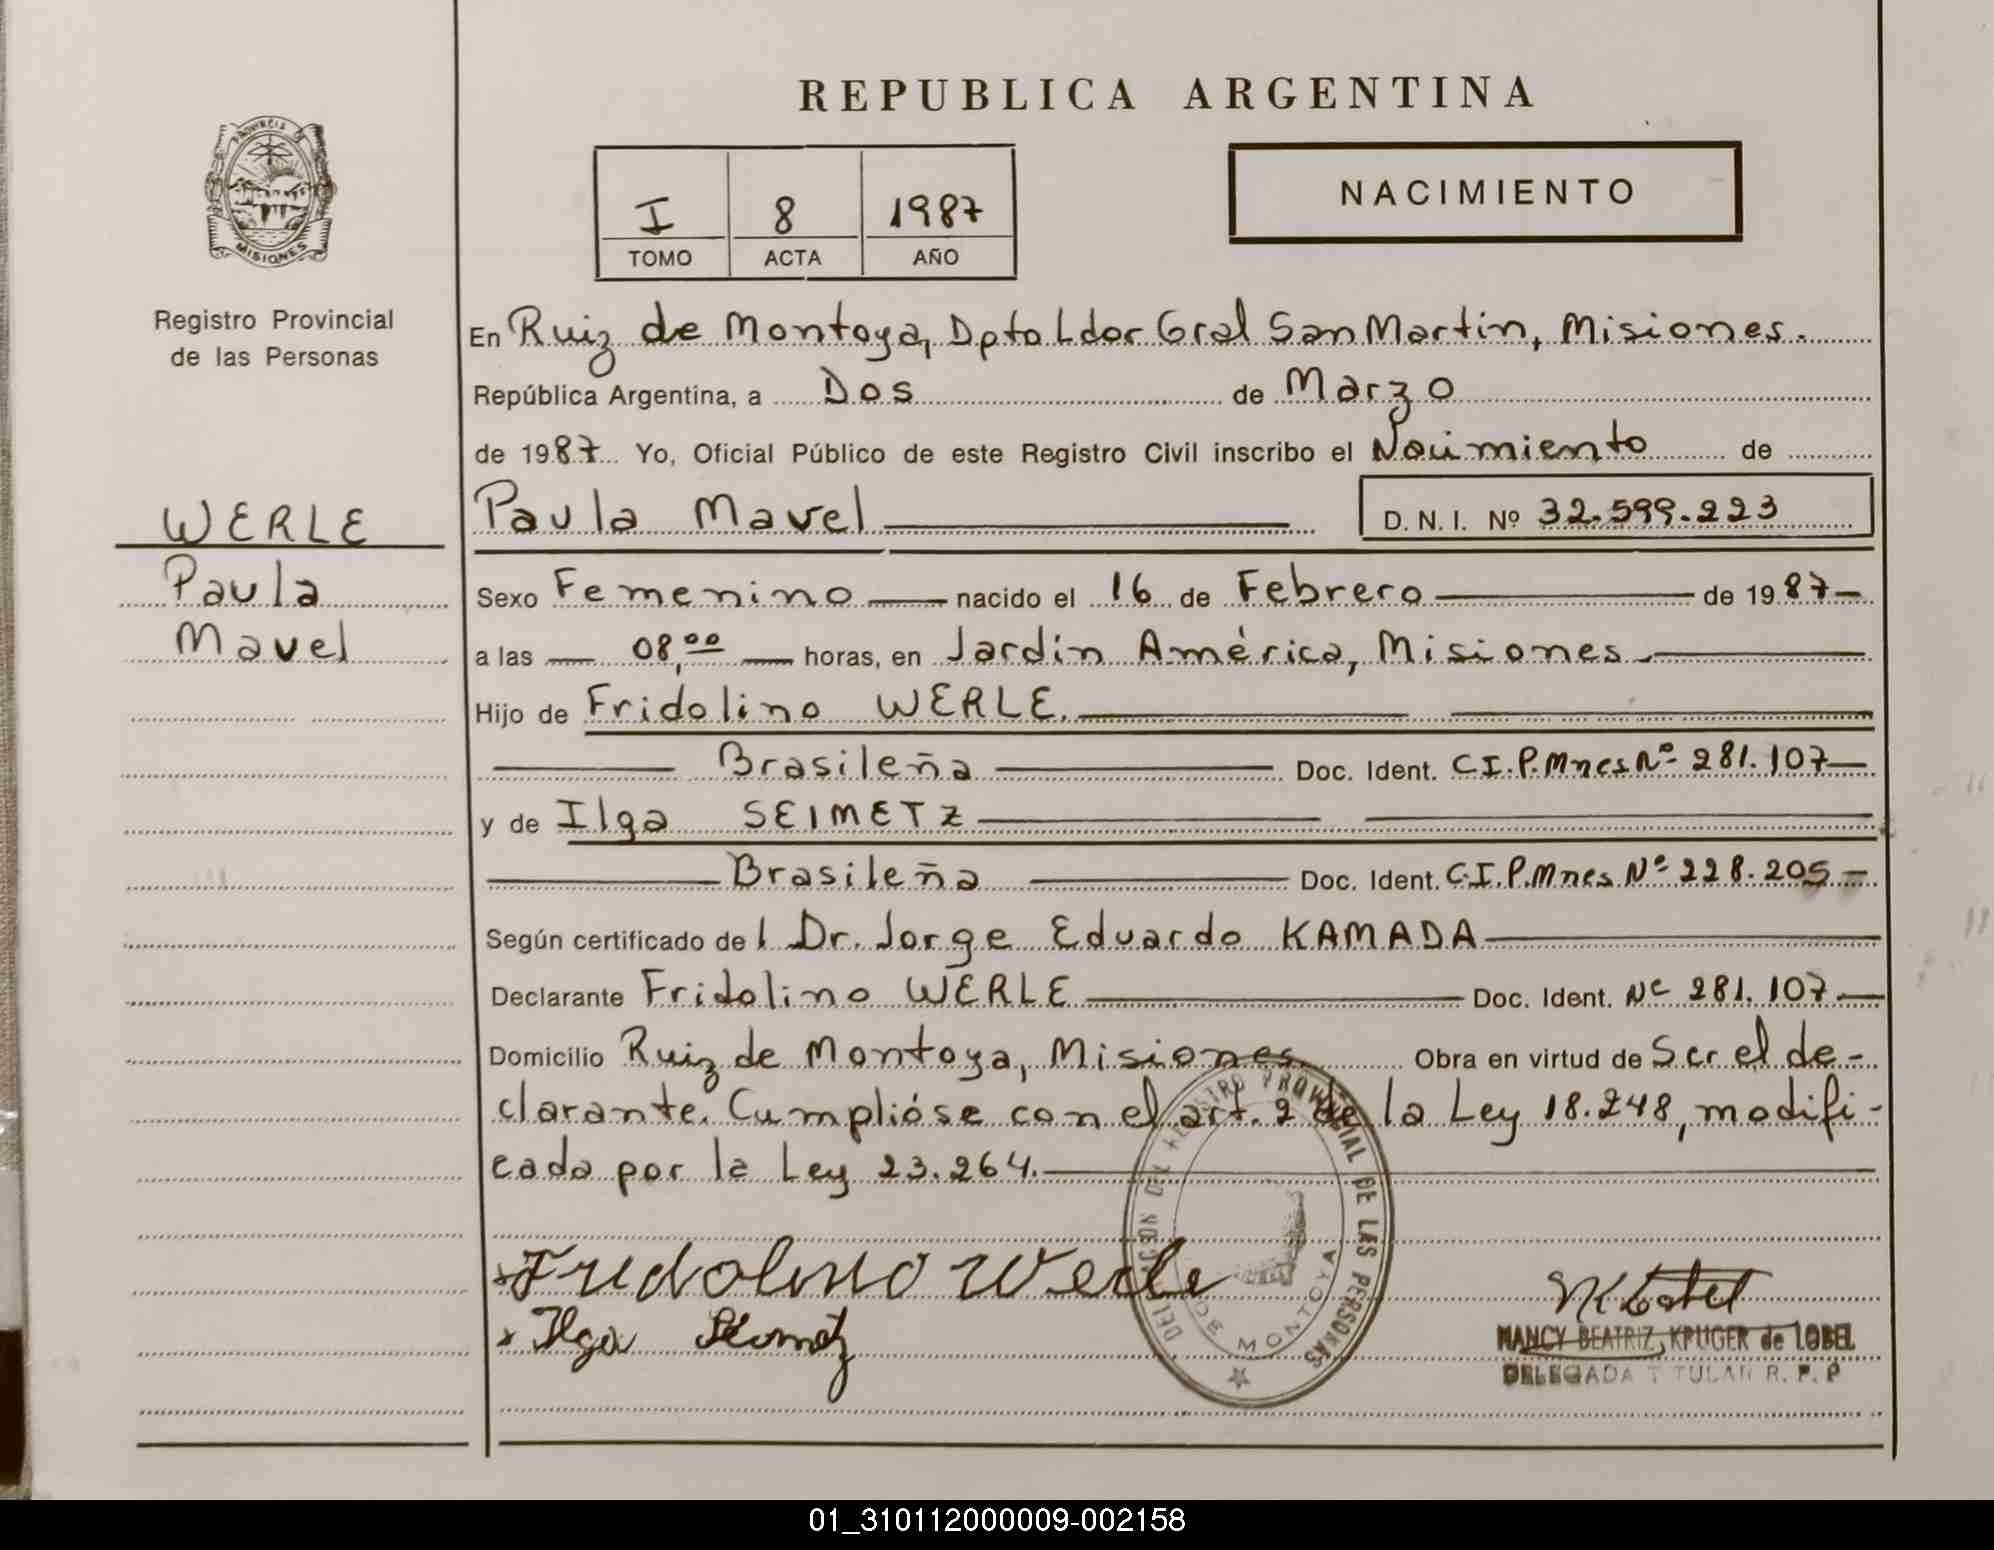 REPUBLICA ARGENTINA
PROVINCIA DE
MISIONES
Registro Provincial
de las Personas
I 8 1987
TOMO ACTA AÑO
NACIMIENTO
En Ruiz de Montoya, Dpto Ldor Gral San Martín, Misiones.
República Argentina, a Dos de Marzo
de 1987 Yo, Oficial Público de este Registro Civil inscribo el Nacimiento de
Paula Mavel D. N. I. Nº 32.599.223
WERLE
Paula
Mavel
Sexo Femenino nacido el 16 de Febrero de 1987
a las 08,00 horas, en Jardín América, Misiones
Hijo de Fridolino WERLE.
Brasileña Doc. Ident. C.I.P.Mnes Nº 281.107
y de Ilga SEIMETZ
Brasileña Doc. Ident. C.I.P.Mnes Nº 228.205
Según certificado de l Dr. Jorge Eduardo KAMADA
Declarante Fridolino WERLE Doc. Ident. Nº 281.107
Domicilio Ruiz de Montoya, Misiones Obra en virtud de Ser el de-
clarante. Cumplióse con el art. 2 de la Ley 18.248, modifi-
cada por la Ley 23.264.
DEL REGISTRO PROVINCIAL DE LAS PERSONAS
DE MONTOYA
Fridolino Werle
Ilga Seimetz
NANCY BEATRIZ KRUGER de LOBEL
DELEGADA TITULAR R. P. P
01_310112000009-002158